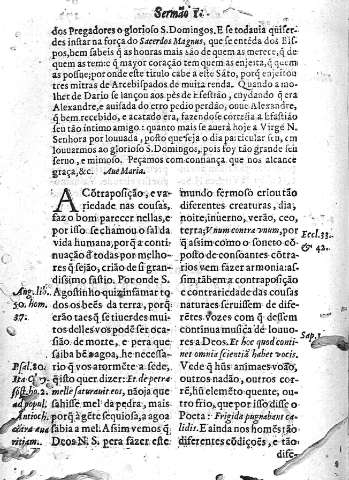 Sermão I.
dos Pregadores o glorioso S. Domingos. E se todauia quiserdes
instar na força do Sacerdos Magnus, que se entẽda dos Bis
pos, bem sabeis q̃ as houras mais são de quem as merece, q̃ de
quem as tem: e q̃ mayor coração tem quem as enjeita, q̃ quem
as possue; por onde este titulo cabe a este Sãto, porq̃ enjeitou
tres mitras de Arcebispados de muita renda. Quando a mo
lher de Dario se lançou aos pés de Efestião, cuydando q̃ era
Alexandre, e auisada do erro pedio perdão, ouue Alexandre,
q̃ bem recebido, e acatado era, fazendose cortesia a Efastião
seu tão intimo amigo: quanto mais se auerá hoje a Virgẽ N.
Senhora por louuada, posto que seja o dia particular seu, em
louuarmos ao glorioso S. Domingos, pois foy tão grande seu
seruo, e mimoso. Peçamos com confiança que nos alcance
graça, &c. Aue Maria.
A Cõtraposição, e va-
riedade nas cousas,
faz o bom parecer nellas, e
por isso se chamou o sal da
vida humana, porq̃ a conti
nuação ẽ todas por melho-
res q̃ sejão, crião de si gran
dissimo fastio. Por onde S.
Agostinho quiz insamar to
dos os beẽs da terra, porq̃
erão taes q̃ se tiuerdes mui
tos delles vos podẽ ser oca
sião de morte, e pera que
saiba bẽ a agoa, he necessa-
rio q̃ vos atormẽte a sede,
q̃ isto quer dizer: Et de petra
melle saturauit eos, não ja que
sahisse mel da pedra, mais
porq̃ á gẽte sequiosa, a agoa
sabia a mel. Assim vemos q̃
Deos N. S. pera fazer este
Aug. lib.
50. hom.
37.
Psal. 80.
ad popul.
Antioch.
mundo fermoso criou tão
diferentes creaturas, dia,
noite, inuerno, verão, ceo,
terra; Vnum contra vnum, por
q̃ assim como o soneto cõ
posto de consoantes cõtra-
rios vem fazer armonia: as-
sim tãbem a contraposição
e contrariedade das cousas
naturaes seruissem de dife-
rẽtes vozes com q̃ dessem
continua musica de louuo-
res a Deos. Et hoc quod conti-
net omnia scientiã habet vocis.
Vede q̃ hũs animaes voão,
outros nadão, outros cor-
rẽ, hũ elemẽto quente, ou-
tro frio, que por isso disse o
Poeta: Frigida pugnabant ca-
lidis. E ainda nos homẽs tão
differentes cõdições, e tão
dife-
Eccl. 33.
& 42.
Sap. 1.